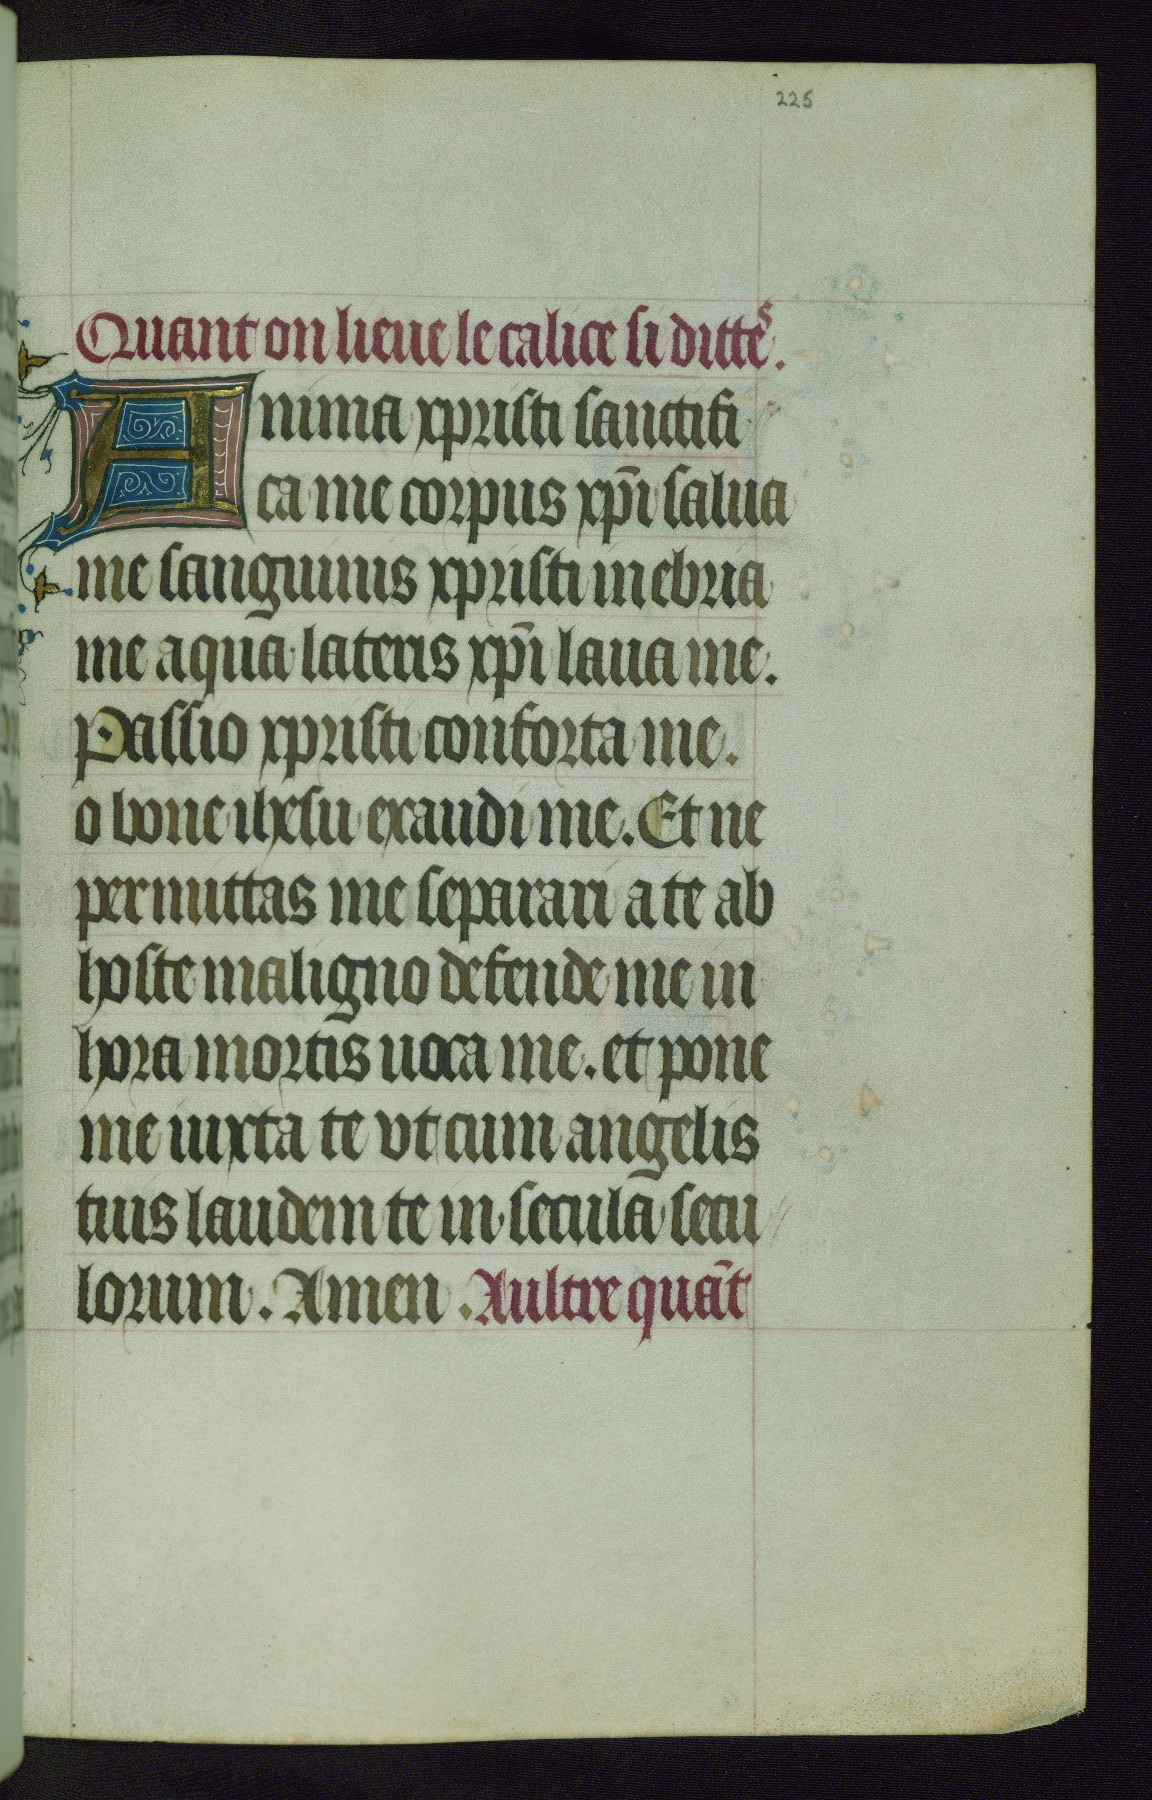 225
Quant on lieue le calice si dittes.
Anima xpristi sanctifi
ca me corpus xp̄i salua
me sanguinis xpristi inebria
me aqua lateris xp̄i laua me.
Passio xpristi conforta me.
o bone ihesu exaudi me. Et ne
permittas me separari a te ab
hoste maligno defende me in
hora mortis uoca me. et pone
me iuxta te vt cum angelis
tuis laudem te in secula secu
lorum. Amen. Aultre quāt